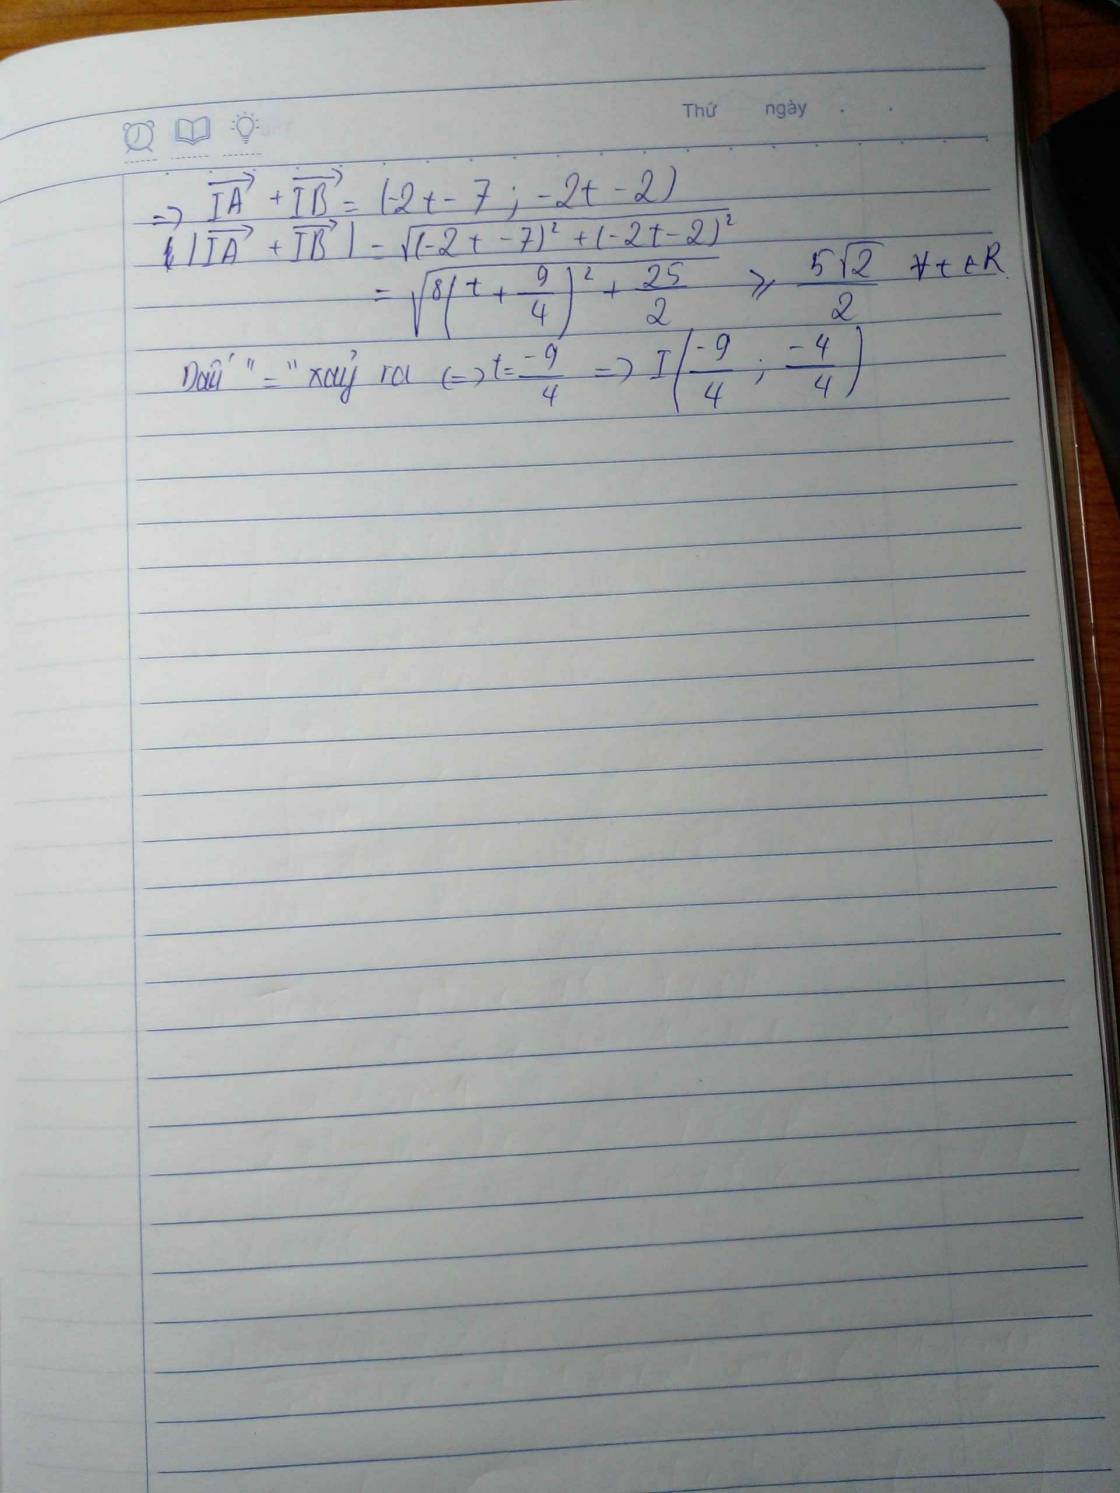 Thứ ngày . .
=> IA→ + IB→ = (-2t - 7 ; -2t - 2)
|IA→ + IB→| = √((-2t - 7)² + (-2t - 2)²)
= √(8(t + 9/4)² + 25/2) ⩾ 5√2/2 ∀t ∈ R
Dấu "=" xảy ra <=> t = -9/4 => I(-9/4 ; -4/4)